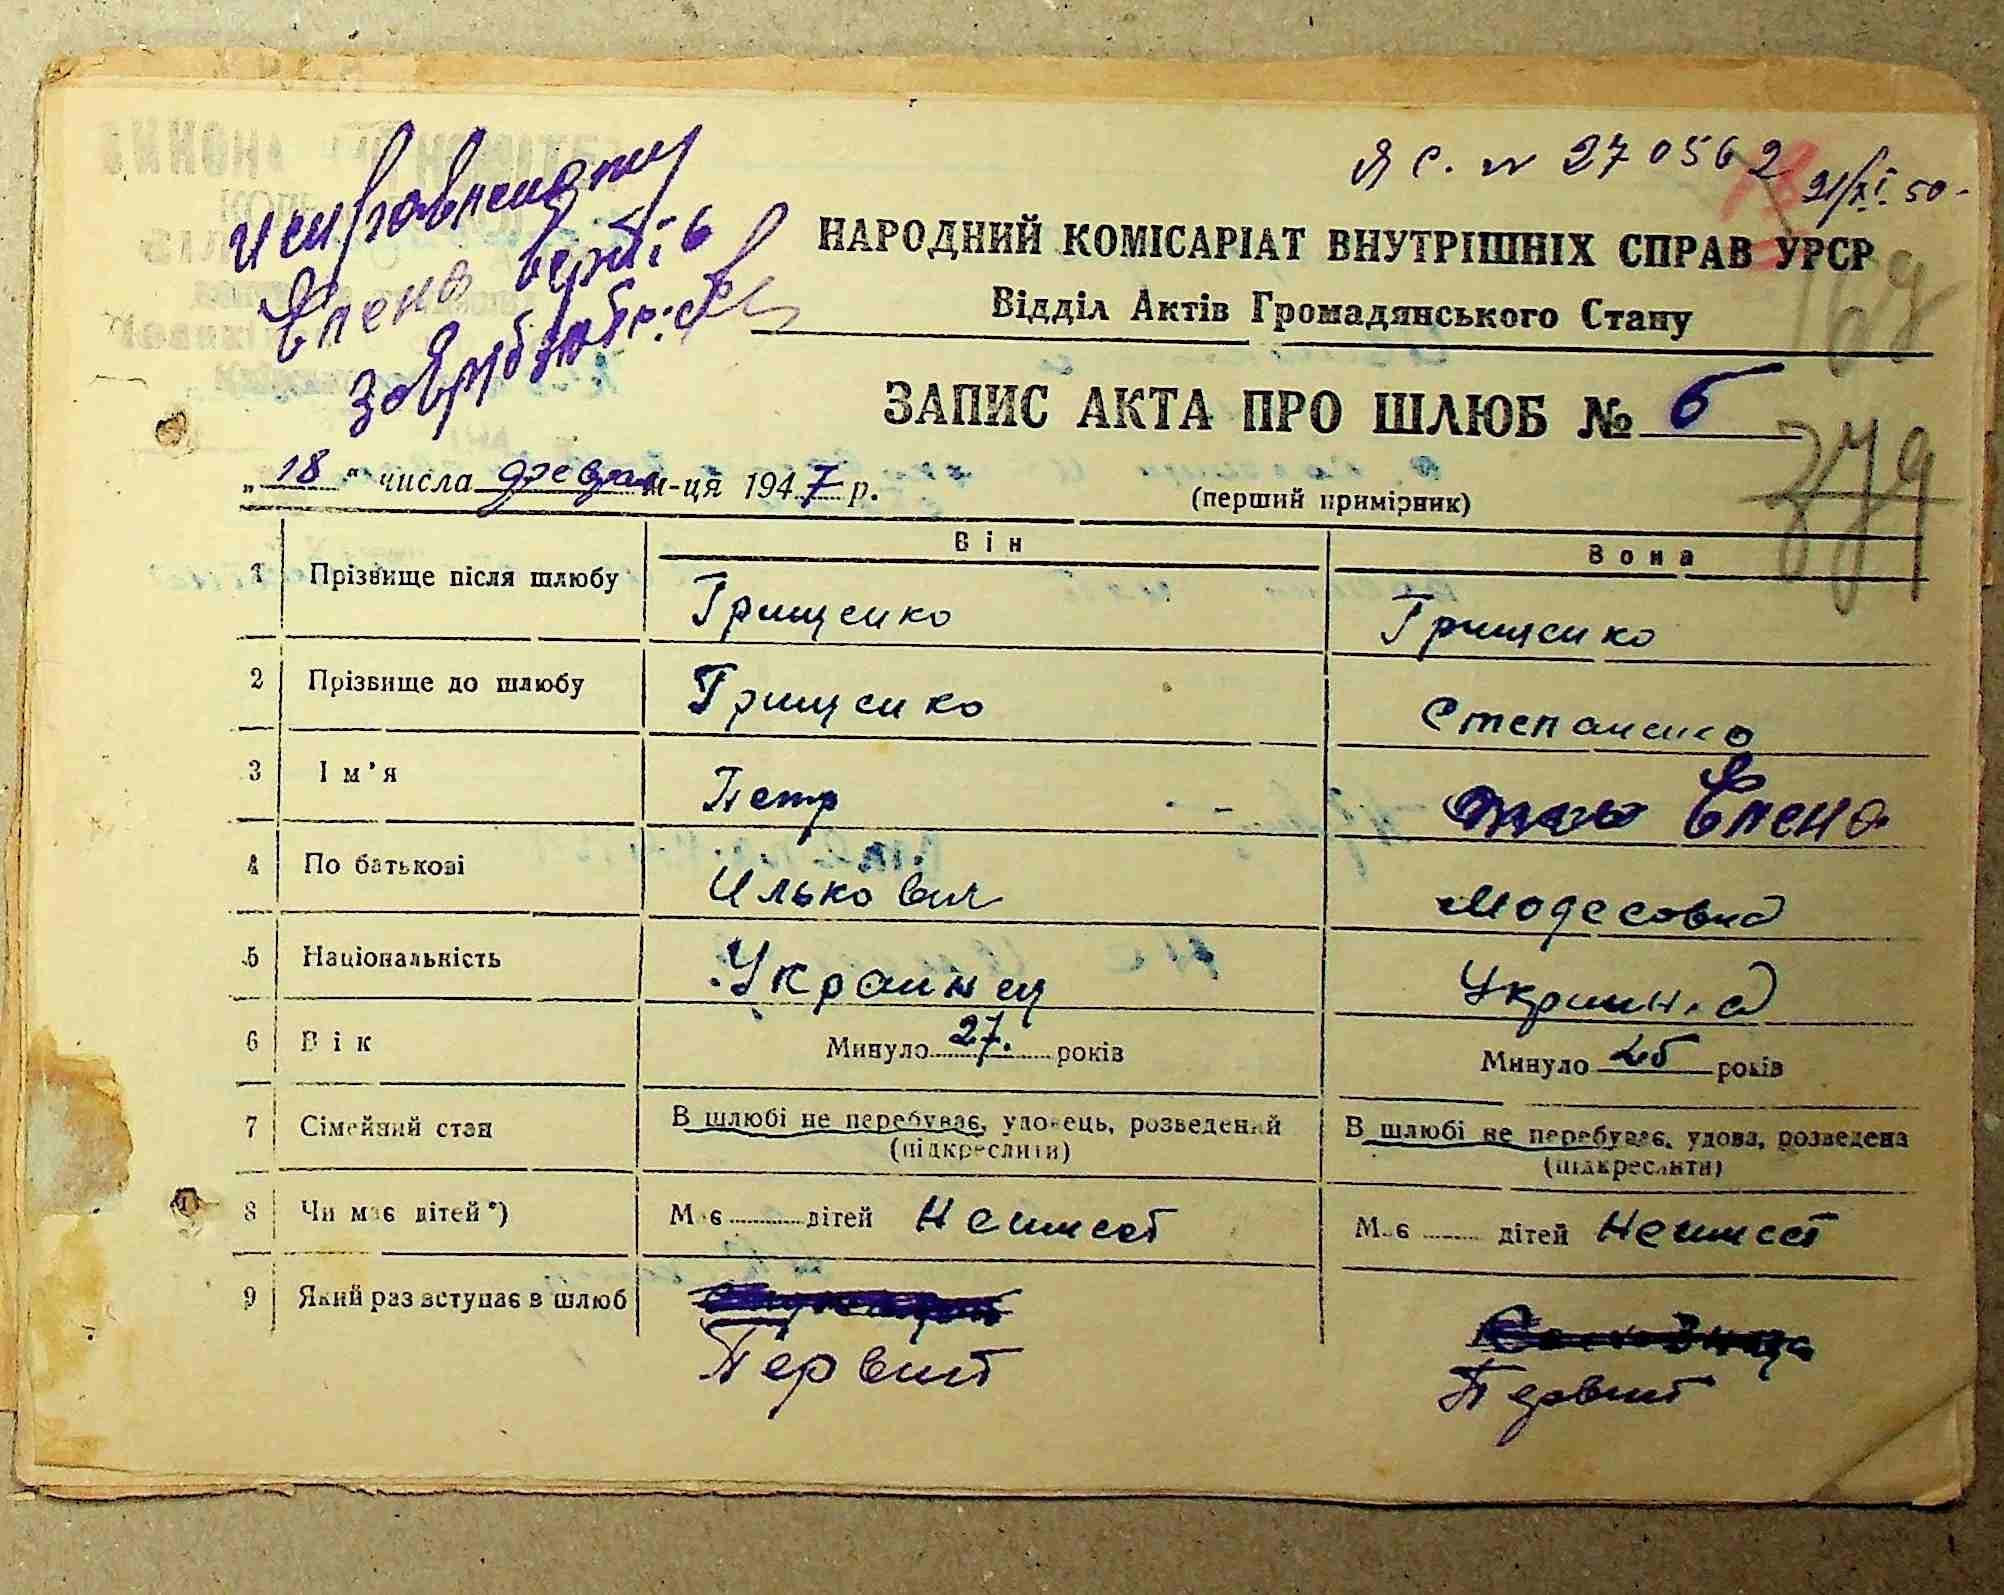 Я С. № 270562 21/XI 50-
Елена
НАРОДНИЙ КОМІСАРІАТ ВНУТРІШНІХ СПРАВ УРСР
Відділ Актів Громадянського Стану
169
ЗАПИС АКТА ПРО ШЛЮБ № 6
379
„18“ числа февра м-ця 1947 р.
(перший примірник)
Він Вона
1 Прізвище після шлюбу Грищенко Грищенко
2 Прізвище до шлюбу Грищенко Степаненко
3 Ім’я Петр Елена
4 По батькові Илькович Модесовна
5 Національність Украинец Украинка
6 Вік Минуло 27. років Минуло 25 років
7 Сімейний стан В шлюбі не перебуває, удовець, розведений В шлюбі не перебуває, удова, розведена
(підкреслити) (підкреслити)
8 Чи має дітей*) Має дітей Неимеет Має дітей Неимеет
9 Який раз вступає в шлюб
Первий Первий